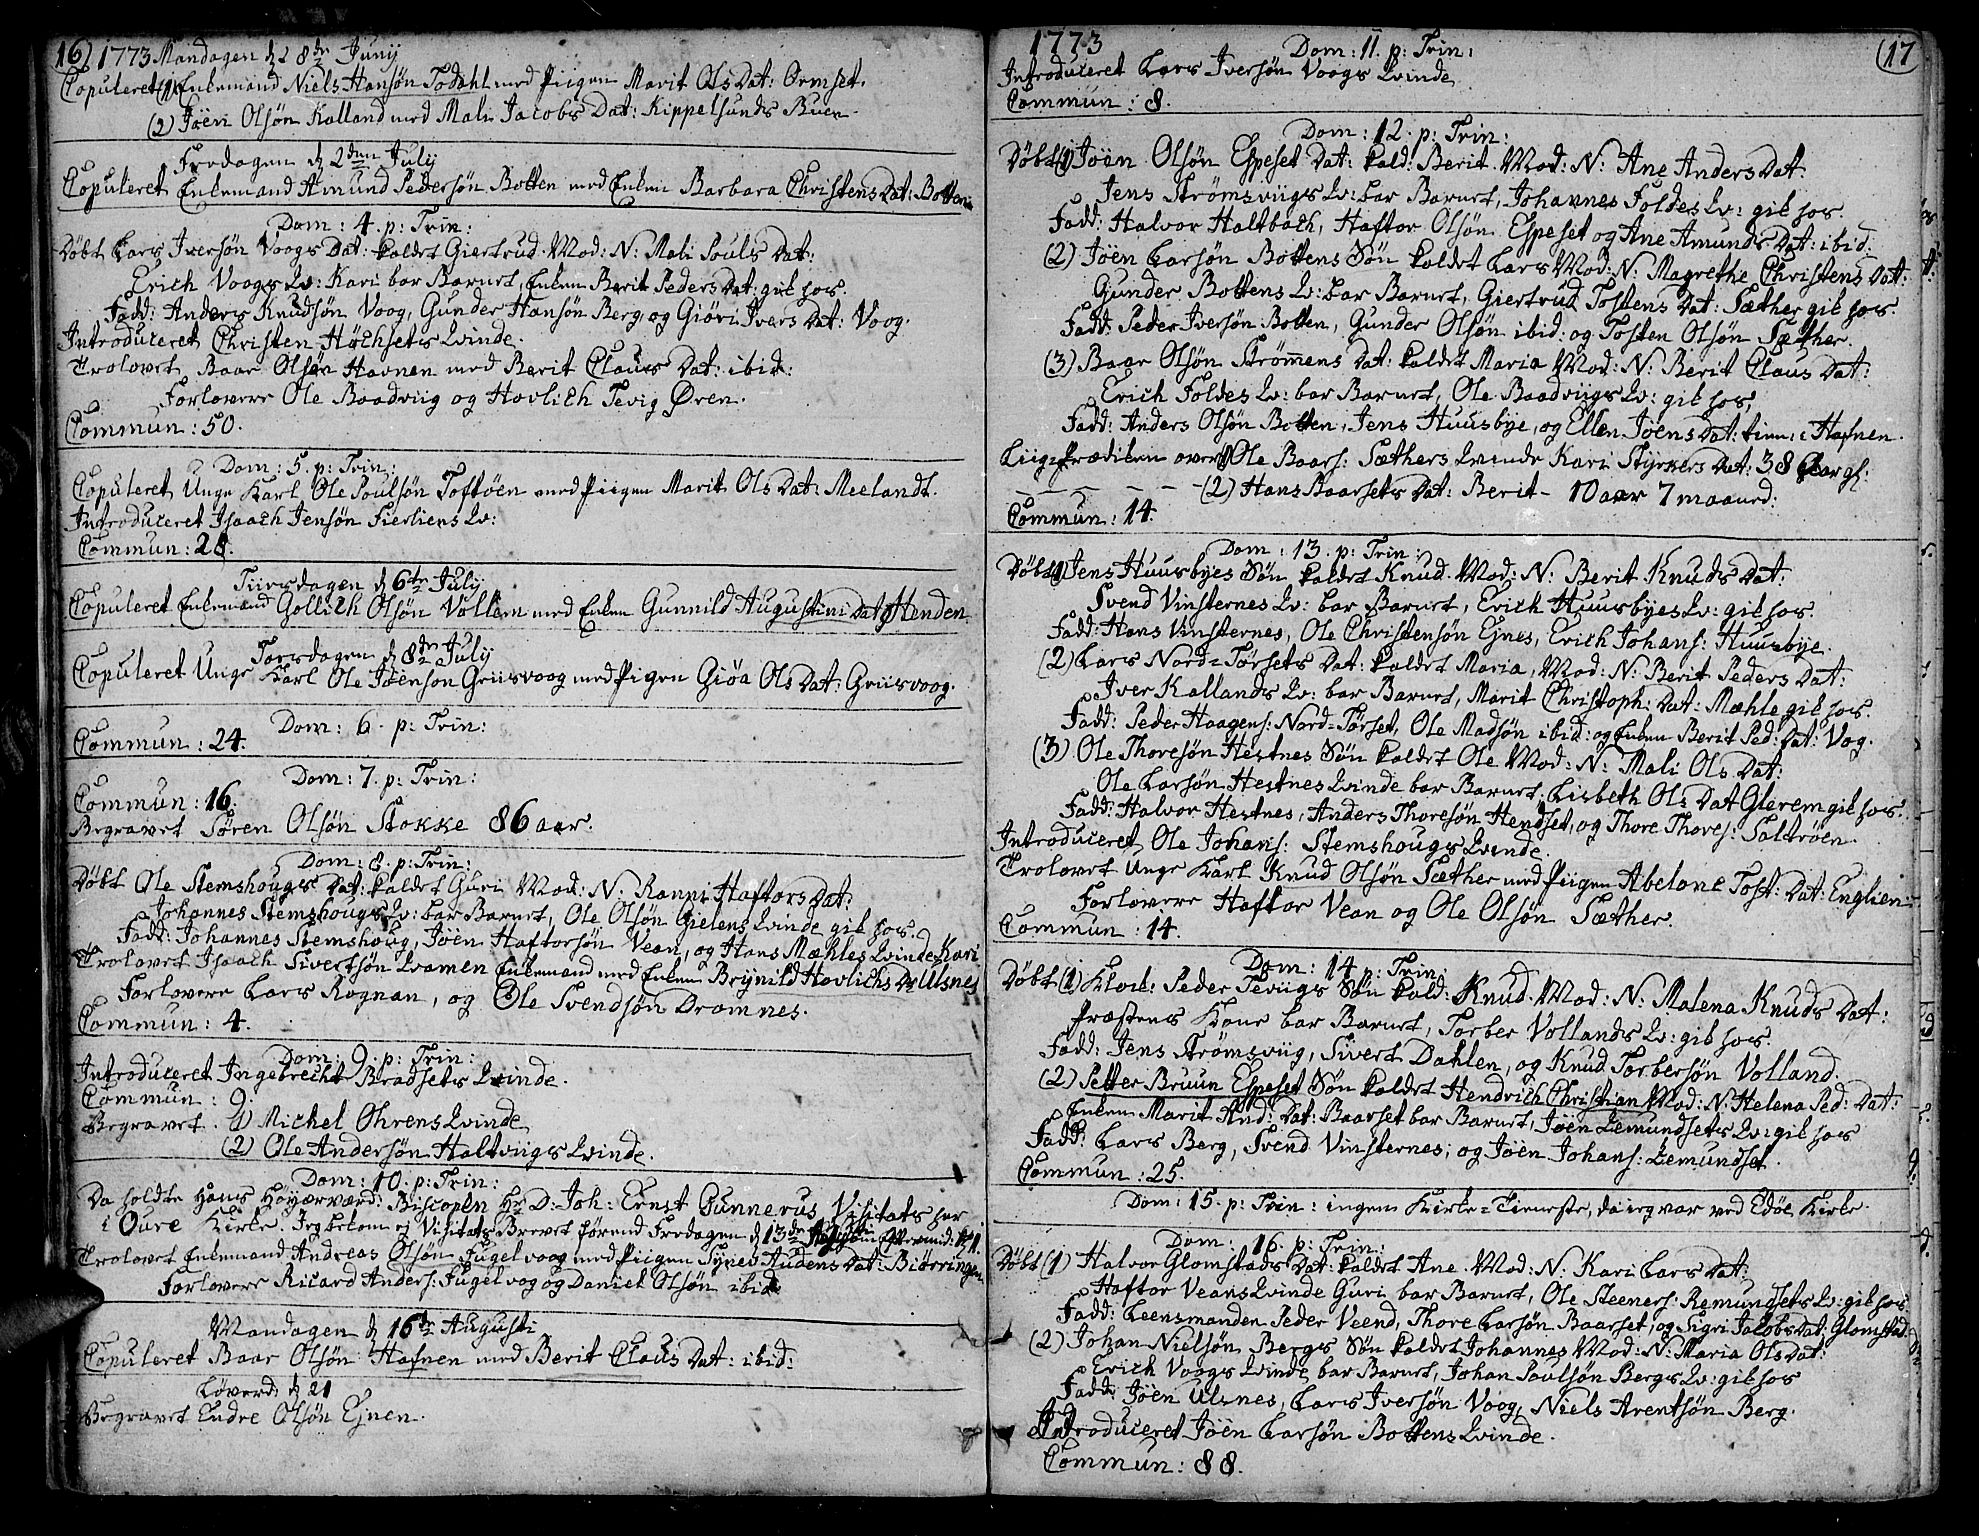 16) 1773 Mandagen d 28de Junij
Copuleret (1) Enkemand Niels Hansøn Todahl med Pigen Marit Ols Dat: Ormset.
(2) Jøen Olsøn Kalland med Mali Jacobs Dat: Kippelsunds Buen.
Fredagen d 2den July
Copuleret Enkemand Amund Pedersøn Botten med Enken Barbara Christens Dat: Botten
Dom: 4. p: Trin:
Døbt Lars Iversøn Voogs Dat: kaldet Giertrud. Mod: N: Mali Pouls Dat:
Erich Voogs Qv: Kari bar Barnet, Enken Berit Peders Dat: gik hos.
Fadd: Anders Knudsøn Voog, Gunder Hansøn Berg, og Giøri Ivers Dat: Voog.
Introduceret Christen Høchsets Qvinde.
Trolovet Baar Olsøn Havnen med Berit Claus Dat: ibid:
Forlovere Ole Baadviig og Hovlich Tevig Øren.
Commun: 50.
Dom: 5. p: Trin:
Copuleret Unge Karl Ole Poulsøn Toftøen med Piigen Marit Ols Dat: Meelandt.
Introduceret Isaach Jensøn Fierliens Qv:
Commun: 28.
Tiirsdagen d 6te July
Copuleret Enkemand Gollich Olsøn Vollem med Enken Gunnild Augustini Dat: Henden
Torsdagen d 8de July
Copuleret Unge Karl Ole Jøensøn Griisvoog med Pigen Giøa Ols Dat: Griisvoog.
Dom: 6. p: Trin:
Commun: 24.
Dom: 7. p: Trin:
Commun: 16.
Begravet Søren Olsøn Stokke 86 aar.
Dom: 8. p: Trin:
Døbt Ole Stemshougs Dat: kaldet Guri Mod: N: Ranni Haftors Dat:
Johannes Stemshougs Qv: bar Barnet, Ole Olsøn Gielens Qvinde gik hos.
Fadd: Johannes Stemshoug, Jøen Haftorsøn Vean, og Hans Mæhles Qvinde Kari
Trolovet Isaach Sivertsøn Qvamen Enkemand med Enken Brynild Hovlichs D: Ulsnes
Forlovere Lars Rognan, og Ole Svendsøn Dromnes.
Commun: 4.
Dom: 9. p: Trin:
Introduceret Ingebrecht Bradsets Qvinde.
Commun: 9.
Begravet. (1) Michel Ohrens Qvinde
(2) Ole Andersøn Haltviigs Qvinde.
Dom: 10. p: Trin:
Da holdte Hans Høyærværd: Biscopen Hr D: Joh: Ernst Gunnerus Visitats her
i Oure Kirke. Jeg bekom ej Visitats Brevet førend Fredagen d 13de Augusti
Trolovet Enkemand Andreas Olsøn Fugelvoog med Piigen Synev Audens Dat: Biørringen
Forlovere Ricard Anders: Fugelvog og Daniel Olsøn ibid
Mandagen d 16de Augusti
Copuleret Baar Olsøn Hafnen med Berit Claus Dat: ibid:
Løverd: d 21
Begravet Endre Olsøn Ejnen.
1773 (17
Dom: 11. p: Trin:
Introduceret Lars Iversøn Voogs Qvinde
Commun: 8.
Dom: 12. p: Trin:
Døbt (1) Jøen Olsøn Espeset Dat: kald: Berit. Mod: N: Ane Anders Dat:
Jens Strømsviigs Qv: bar Barnet, Johannes Foldes Qv: gik hos.
Fadd: Halvor Haltbach, Haftor Olsøn Espeset og Ane Amunds Dat: ibid:
(2) Jøen Larsøn Bottens Søn kaldet Lars Mod: N: Magrethe Christens Dat:
Gunder Bottens Qv: bar Barnet, Giertrud Tostens Dat: Sæther gik hos.
Fadd: Peder Iversøn Botten, Gunder Olsøn ibid: og Tosten Olsøn Sæther.
(3) Baar Olsøn Strømens Dat: kaldet Maria Mod: N: Berit Claus Dat:
Erich Foldes Qv: bar Barnet, Ole Baadviigs Qv: gik hos,
Fadd: Anders Olsøn Botten, Jens Huusbye, og Ellen Jøens Dat: tien: i Hafnen.
Liig-Prædiken over (1) Ole Baars: Sæthers Qvinde Kari Styrkers Dat: 38 Aar gl:
(2) Hans Baarsets Dat: Berit - 10 aar 7 maaned:
Commun: 14.
Dom: 13. p: Trin:
Døbt (1) Jens Huusbyes Søn kaldet Knud. Mod: N: Berit Knuds Dat:
Svend Vinsternes Qv: bar Barnet, Erich Huusbyes Qv: gik hos
Fadd: Hans Vinsternes, Ole Christensøn Ejnes, Erich Johans: Huusbye.
(2) Lars Nord=Tørsets Dat: kaldet Maria, Mod: N: Berit Peders Dat:
Iver Kallands Qv: bar Barnet, Marit Christoph: Dat: Mæhle gik hos.
Fadd: Peder Haagens: Nord=Tørset, Ole Madsøn ibid: og Enken Berit Ped: Dat: Vog.
(3) Ole Thoresøn Hestnes Søn kaldet Ole Mod: N: Mali Ols Dat:
Ole Larsøn Hestnes Qvinde bar Barnet, Lisbeth Ols Dat Glerem gik hos.
Fadd: Halvor Hestnes, Anders Thoresøn Hendset, og Thore Thores: Saltrøen.
Introduceret Ole Johans: Stemshougs Qvinde.
Trolovet Unge Karl Knud Olsøn Sæther med Piigen Abelone Tost: Dat: Englien
Forlovere Haftor Vean og Ole Olsøn Sæther.
Commun: 14.
Dom: 14. p: Trin:
Døbt (1) Klok: Peder Teviigs Søn kald: Knud. Mod: N: Malena Knuds Dat:
Præstens Kone bar Barnet, Torber Vollands Qv: gik hos
Fadd: Jens Strømsviig, Sivert Dahlen, og Knud Torbersøn Volland.
(2) Petter Bruun Espeset Søn kaldet Hendrich Christian Mod: N: Helena Ped: Dat:
Enken Marit And: Dat: Baarset bar Barnet, Jøen Lemundsets Qv: gik hos
Fadd: Lars Berg, Svend Vinsternes, og Jøen Johans: Lemundset.
Commun: 25.
Dom: 15. p: Trin: ingen Kirke-Tieneste, da ieg var ved Edøe Kirke.
Dom: 16. p: Trin:
Døbt (1) Halvor Glomstads Dat: kaldet Ane. Mod: N. Kari Lars Dat:
Haftor Veans Qvinde Guri bar Barnet, Ole Steeners: Remundsets Qv: gik hos.
Fadd: Leensmanden Peder Veend, Thore Larsøn Baarset, og Sigri Jacobs Dat: Glomstad.
(2) Johan Nielsøn Bergs Søn kaldet Johannes Mod: N: Maria Ols Dat:
Erich Voogs Qvinde bar Barnet, Johan Poulsøn Bergs Qv: gik hos
Fadd: Jøen Ulsnes, Lars Iversøn Voog, Niels Arentsøn Berg.
Introduceret Jøen Larsøn Bottens Qvinde.
Commun: 88.